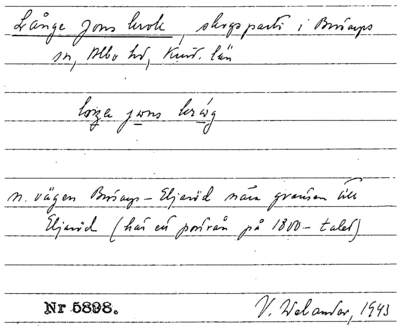 Långe Jons krok, skogsparti i Brösarps
sn, Albo hd, Krist. län
n. vägen Brösarp - Eljaröd nära gränsen till
Eljaröd (här ett postrån på 1800-talet)
Nr 5898. V. Welander, 1943